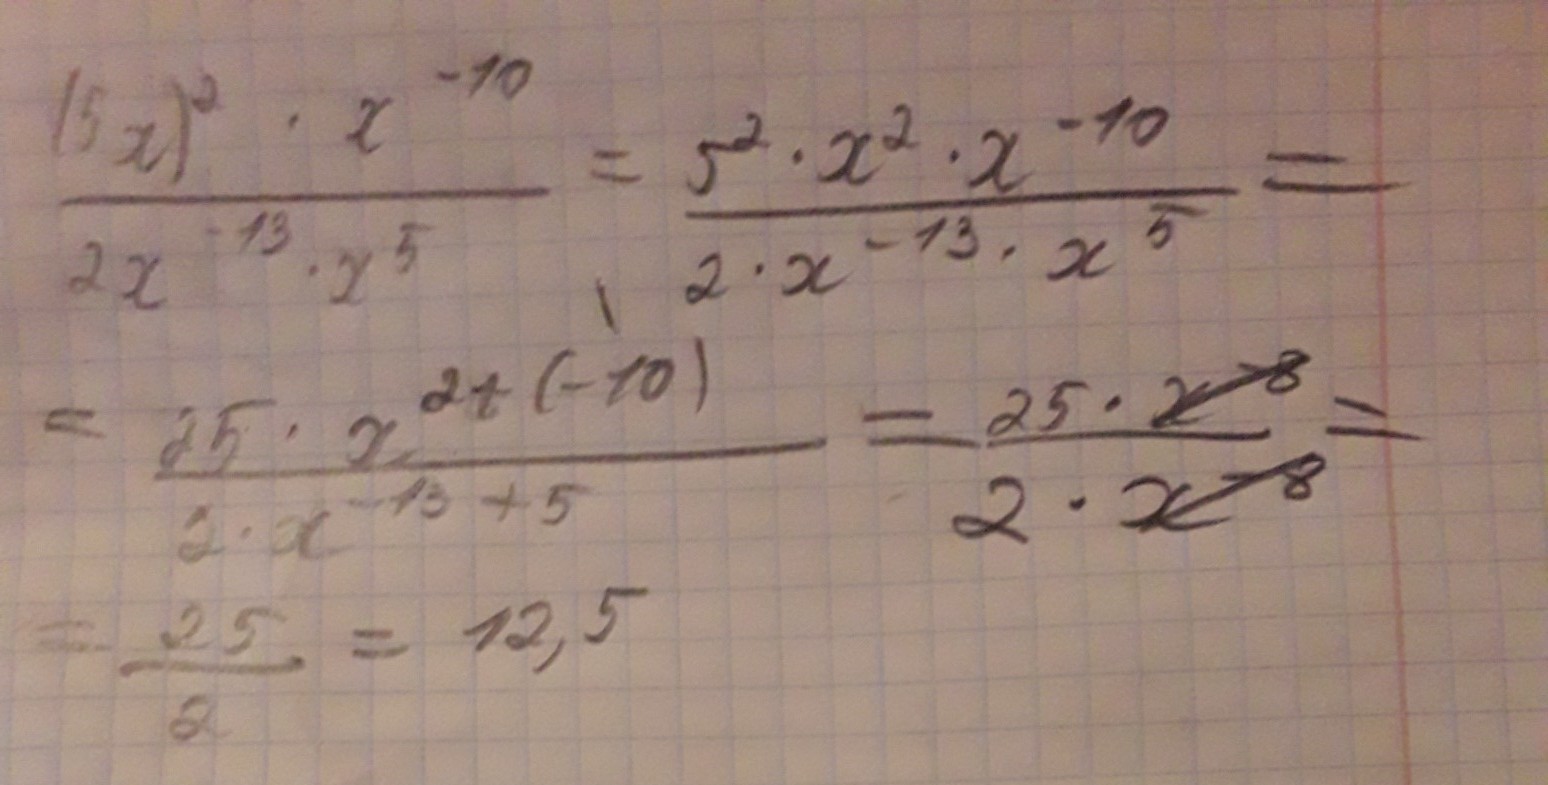 (5x)² · x⁻¹⁰ / 2x⁻¹³ · x⁵ = 5² · x² · x⁻¹⁰ / 2 · x⁻¹³ · x⁵ =
= 25 · x²⁺⁽⁻¹⁰⁾ / 2 · x⁻¹³⁺⁵ = 25 · x⁻⁸ / 2 · x⁻⁸ =
= 25 / 2 = 12,5